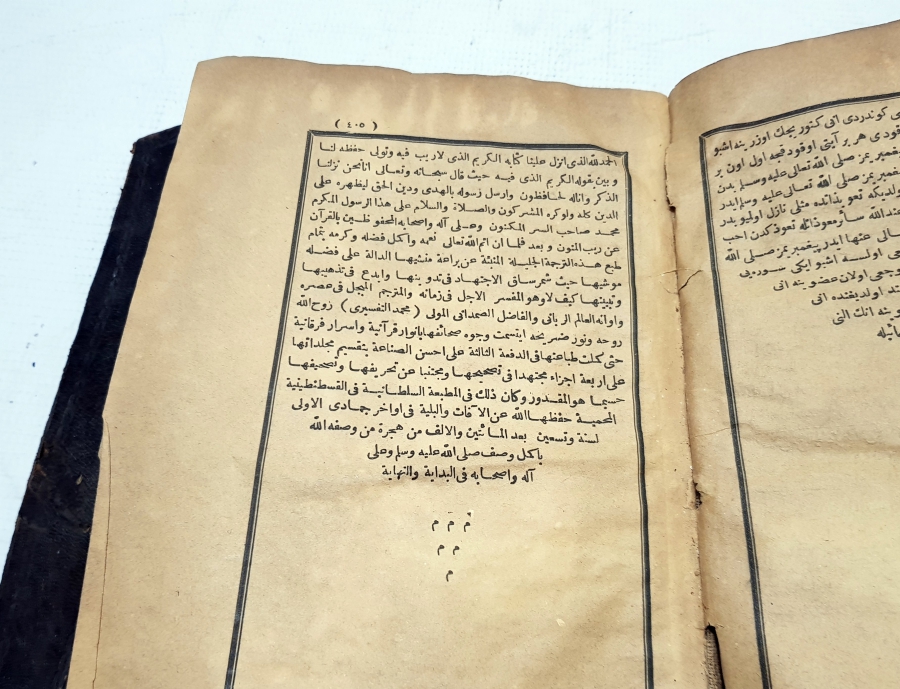 ( ٤٠٥ )
الحمد لله الذى انزل علينا كتابه الكريم الذى لاريب فيه وتولى حفظه لنا
وبين بقوله الكريم الذى فيه حيث قال سبحانه وتعالى انا نحن نزلنا
الذكر وانا له لحافظون وارسل رسوله بالهدى ودين الحق ليظهره على
الدين كله ولوكره المشركون والصلاة والسلام على هذا الرسول المكرم
محمد صاحب السر المكنون وعلى آله واصحابه المحفوظين بالقرآن
عن ريب المنون وبعد فلما ان اتم الله تعالى نعمه واكمل فضله وكرمه بتمام
طبع هذه الترجمة الجليلة المنبئة عن براعة منشيها الدالة على فضله
موشيها حيث شمر ساق الاجتهاد فى تدوينها وابدع فى تذهيبها
وتبيينها كيف لاوهو المفسر الاجل فى زمانه والمترجم المبجل فى عصره
واوانه العالم الربانى والفاضل الصمدانى المولى ( محمد التفسيرى ) روح الله
روحه ونور ضريحه ابتسمت وجوه صحائفها بانوار قرآنية واسرار فرقانية
حتى كملت طباعتها فى الدفعة الثالثة على احسن الصناعة بتقسيم مجلداتها
على اربعة اجزاء مجتهدا فى تصحيحها ومجتنبا عن تحريفها وتصحيفها
حسبما هو المقدور وكان ذلك فى المطبعة السلطانية فى القسطنطينية
المحمية حفظها الله عن الآفات والبلية فى اواخر جمادى الاولى
لسنة وتسعين بعد المائتين والالف من هجرة من وصفه الله
باكمل وصف صلى الله عليه وسلم وعلى
آله واصحابه فى البداية والنهاية
م م م
م م
م
كوندردى انى كتور يجك اوزرينه اشبو
قودى هر بر آيتى اوقودقجه اول اون بر
يغمبريمز صلى الله تعالى عليه وسلم بدن
يغمبريمز صلى الله تعالى عليه وسلم ايدر
ولديكه تعوذ بابنده مثلى نازل اوليوبدر
عند الله سائر معوذاتله تعوذ كدن احب
الى عنها ايدر پيغمبريمز صلى الله
اولسه اشبو ايكى سوره يى
وجعى اولان عضوينه انى
تد اولديغنده انى
وينه انك النى